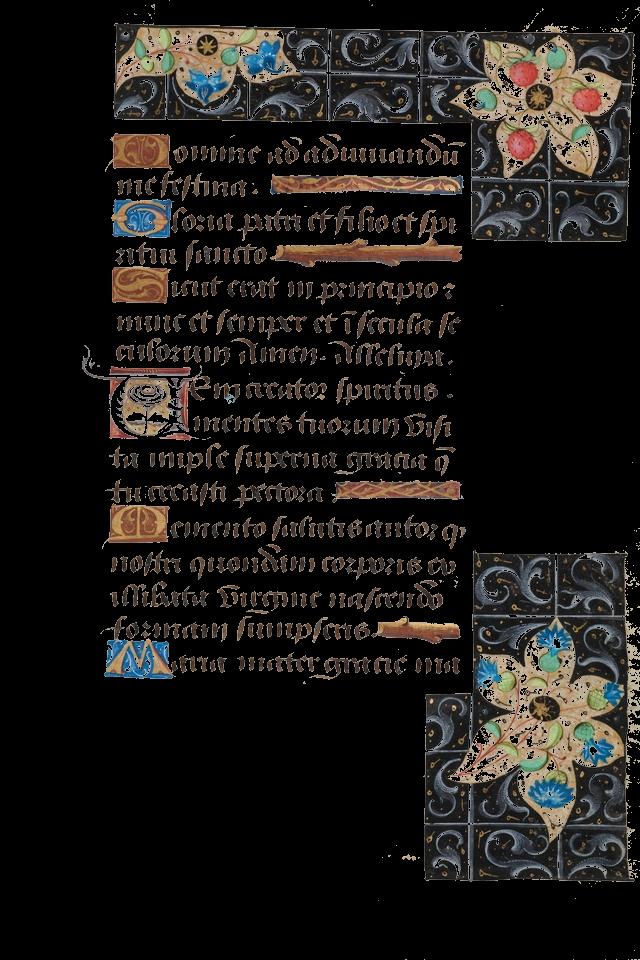 Domine ad adiuuandū
me festina.
Gloria patri et filio et spi
ritui sancto
Sicut erat in principio ⁊
nunc et semper et ī secula se
culorum Amen. Alleluya.
Ueni creator spiritus.
mentes tuorum visi
ta imple superna gracia q̄
tu creasti pectora
Memento salutis autor q
nostri quondam corporis ex
illibata virgine nascendo
formam sumpseris
Maria mater gracie ma